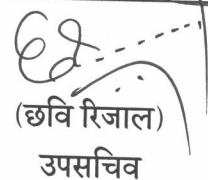 (छवि रिजाल)
उपसचिव